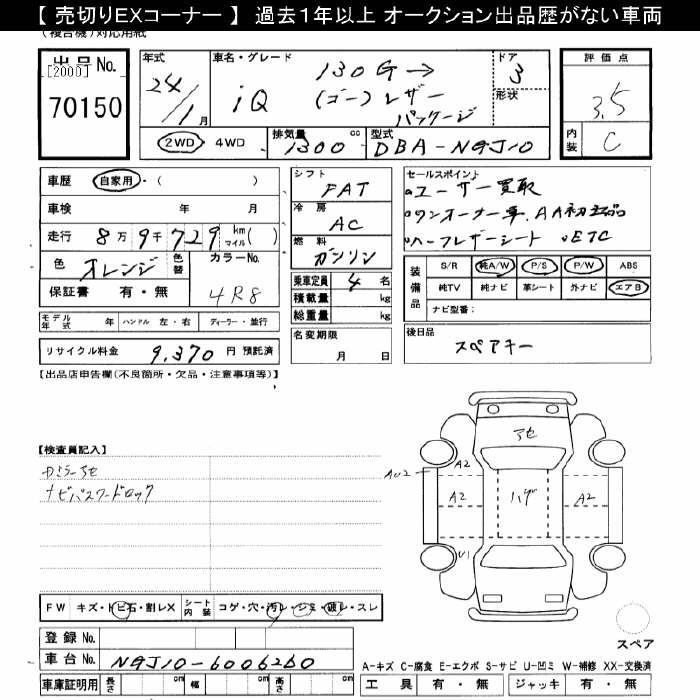 【 売切りEXコーナー 】 過去1年以上 オークション出品歴がない車両
(複合機)対応用紙
出品No.
[2000]
70150
年式
24/1月
車名・グレード
iQ
130G→
(ゴー)レザー
パッケージ
ドア
3
形状
評価点
3.5
内装
C
2WD・4WD
排気量
1300 cc
型式
DBA-NGJ10
車歴 自家用・( )
車検 年 月
走行 8万9千729 km マイル( )
色 オレンジ
色替
カラーNo.
4R8
保証書 有・無
シフト
FAT
冷房
AC
燃料
ガソリン
乗車定員 4 名
積載量 kg
総重量 kg
セールスポイント
•ユーザー買取
•ワンオーナー車.AA初出品
•ハーフレザーシート •ETC
装備品
S/R 純A/W P/S P/W ABS
純TV 純ナビ 革シート 外ナビ エアB
ナビ型番:
モデル年式 年 ハンドル 左・右 ディーラー・並行
名変期限
月 日
後日品
スペアキー
リサイクル料金 9,370 円 預託済
【出品店申告欄(不良箇所・欠品・注意事項等)】
【検査員記入】
ナビパスワードロック
アセ
A2
AU2
A2
ハゲ
A2
U1
FW キズ・トビ石・割レX
シート内装 コゲ・穴・汚レ・シミ・破レ・スレ
登録No.
車台No. NGJ10-6006260
車庫証明用 長さ cm 幅 cm 高さ cm
スペア
A-キズ C-腐食 E-エクボ S-サビ U-凹ミ W-補修 XX-交換済
工具 有・無 ジャッキ 有・無